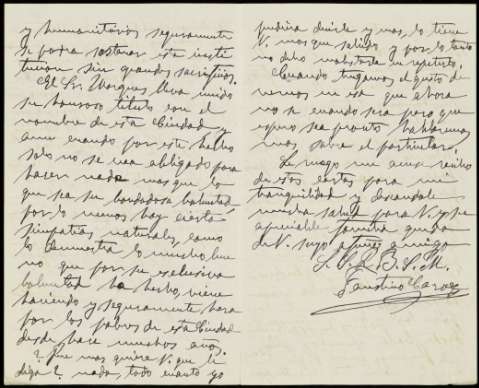 y humanitarios seguramente
se podra sostener esta insti
tucion sin grandes sacrificios.
El Sr. Marques lleva unido
su honroso titulo con el
nombre de esta Ciudad y
aun cuando por este hecho
solo no se vea obligado para
hacer nada mas que lo
que sea su bondadosa voluntad
por lo menos hay cierta
simpatias naturales, como
lo demuestra lo mucho bue
no que por su exclusiva
voluntad ha hecho, viene
haciendo y seguramente hara
por los pobres de esta Ciudad
desde hace muchos años.
¿Que mas quiere V. que le
diga? nada, todo cuanto yo
pudiera decirle y mas, lo tiene
V. mas que sabido y por lo tanto
no debo molestarle en repetirlo.
Cuando tengamos el gusto de
vernos en esa que ahora
no se cuando sera pero que
espero sea pronto hablaremos
mas sobre el particular.
Le ruego me acuse recibo
de estas cartas para mi
tranquilidad y deseandole
mucha salud para V. y su
apreciable familia queda
de V. suyo afmo. amigo
S. S. Q. B. S. M.
Faustino